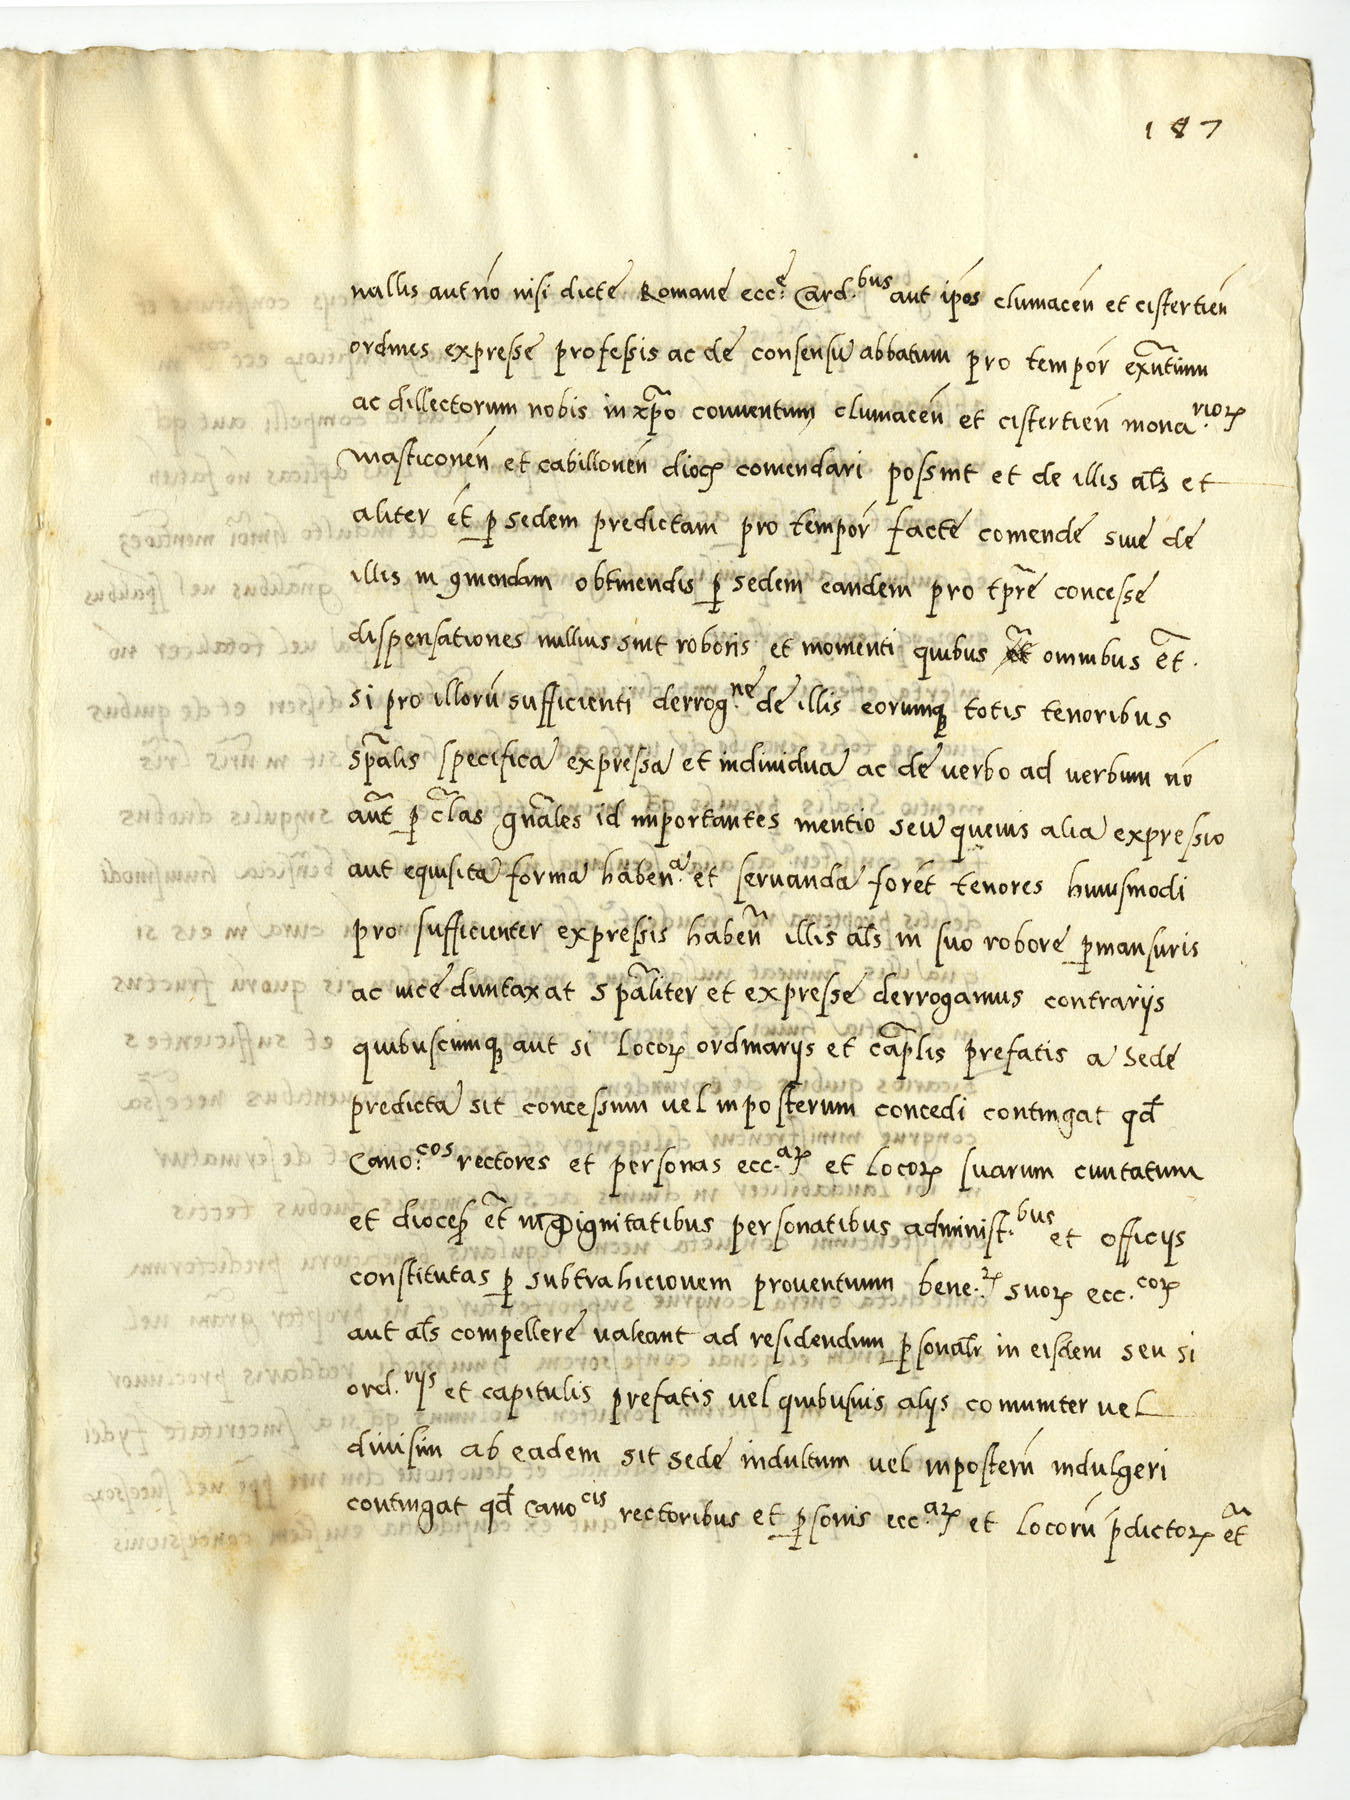 187
nallis aut nō nisi dicte Romane ecc.e Card.bus aut ip̄os clumaceñ et cistertieñ
ordines expresse professis ac de consensu abbatum pro tempor̄ ex̄ntium
ac dillectorum nobis in xp̄o conuentum clumaceñ et cistertieñ mona.rioꝝ
masticoneñ et cabilloneñ dioc̄ comendari possint et de illis al̄s et
aliter ēt ꝑ sedem predictam pro tempor̄ facte comende siue de
illis in ꝯmendam obtinendis ꝑ sedem eandem pro tp̄re concesse
dispensationes nullius sint roboris et momenti quibus omnibus ēt.
si pro illorū sufficienti derrog.ne de illis eorumqꝫ totis tenoribus
sp̄alis specifica expressa et indiuidua ac de uerbo ad uerbum nō
aūt ꝑ cl̄as gn̄ales id importantes mentio seu queuis alia expressio
aut equisita forma haben.a et seruanda foret tenores huiusmodi
pro sufficienter expressis habeñ illis al̄s in suo robore ꝑmansuris
ac uice duntaxat sp̄aliter et expresse derrogamus contrarijs
quibuscumqꝫ aut si locoꝝ ordinarijs et cap̄lis prefatis a Sede
predicta sit concessum uel inposterum concedi contingat qd̄
Cano.cos rectores et personas ecc.aꝝ et locoꝝ suarum ciuitatum
et dioceṣ̄ ēt in Dignitatibus personatibus administ.bus et officijs
constitutas ꝑ subtrahicionem prouentuum bene.ꝝ suoꝝ ecc.coꝝ
aut al̄s compellere ualeant ad residendum ꝑsonalr̄ in eisdem seu si
ord.rijs et capitulis prefatis uel quibusuis alijs comuniter uel
diuisim ab eadem sit sede indultum uel inposterū indulgeri
contingat qd̄ Canocis rectoribus et ꝑsonis ecc.aꝝ et locorū p̄dictoꝝ ēt